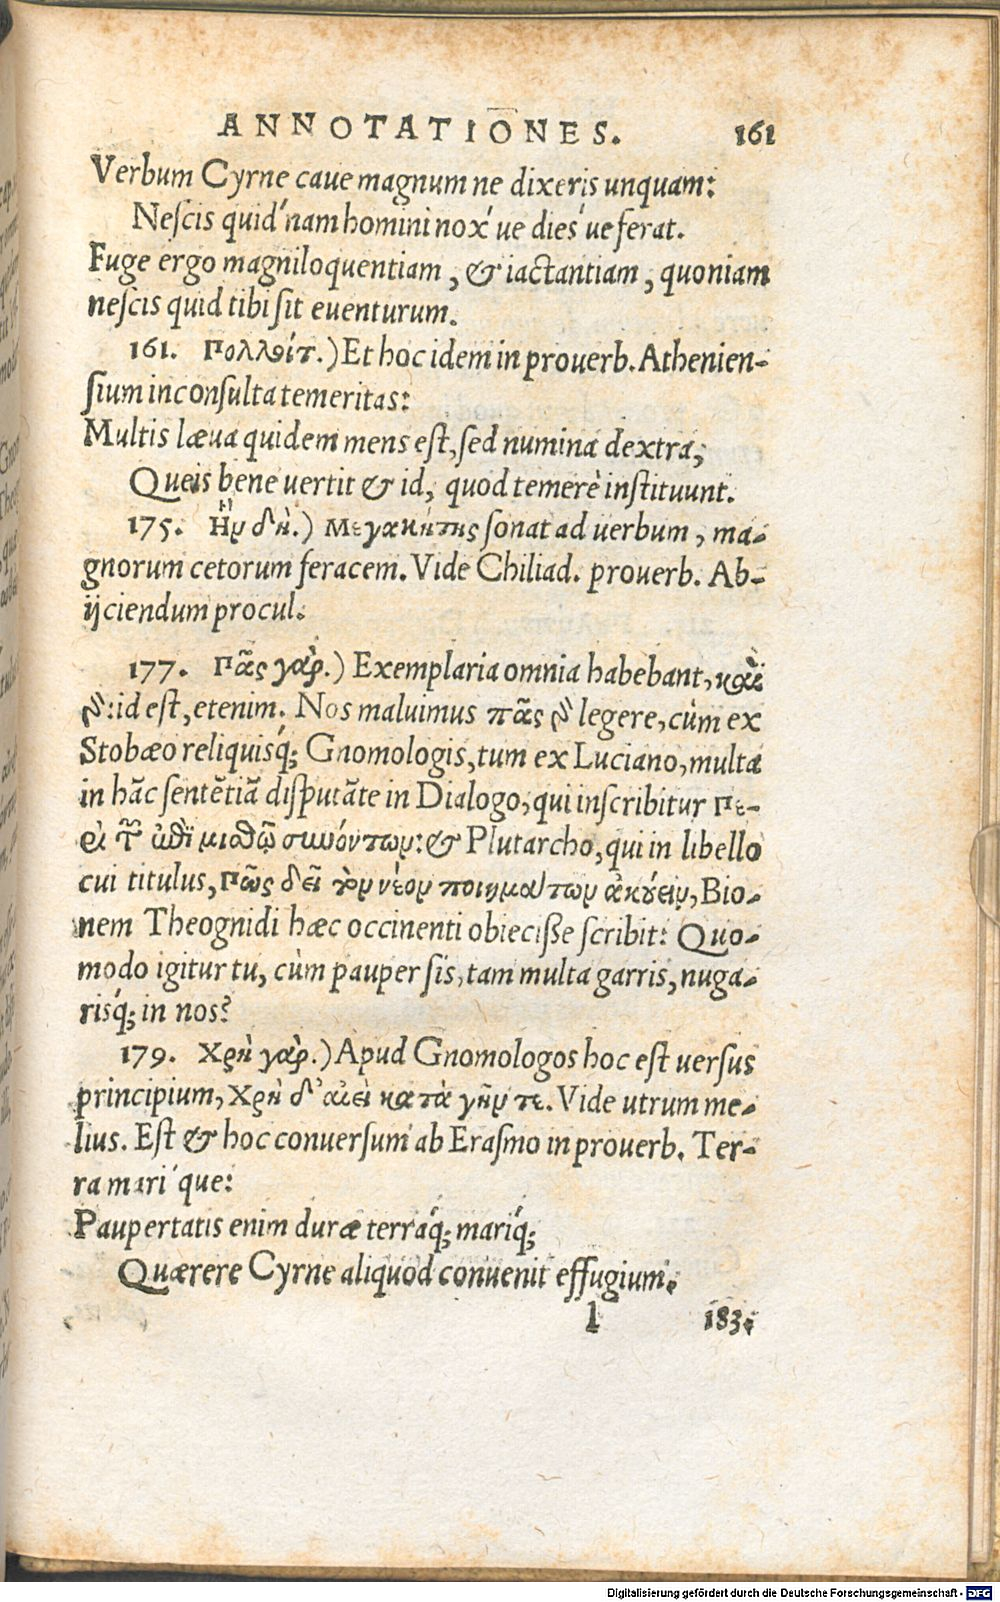 ANNOTATIONES. 161
Verbum Cyrne caue magnum ne dixeris unquam:
Neſcis quid'nam homini nox'ue dies'ue ferat.
Fuge ergo magniloquentiam, & iactantiam, quoniam
neſcis quid tibi ſit euenturum.
161. Πολλοῖτ.) Et hoc idem in prouerb. Athenien-
ſium inconſulta temeritas:
Multis læua quidem mens eſt, ſed numina dextra,
Queis bene uertit & id, quod temerè inſtituunt.
175. Ἢν δὴ.) Μεγακήτης ſonat ad uerbum, ma-
gnorum cetorum feracem. Vide Chiliad. prouerb. Ab-
ijciendum procul.
177. Πᾶς γὰρ.) Exemplaria omnia habebant, καὶ
γὸ: id eſt, etenim. Nos maluimus πᾶς γὸ legere, cùm ex
Stobæo reliquisq́; Gnomologis, tum ex Luciano, multa
in hāc ſentētiā diſputāte in Dialogo, qui inſcribitur Πε-
ρὶ τῶν ἐπὶ μισθῷ συνόντων: & Plutarcho, qui in libello
cui titulus, Πῶς δεῖ τὸν νέον ποιημάτων ἀκούειν, Bio-
nem Theognidi hæc occinenti obieciſſe ſcribit: Quo-
modo igitur tu, cùm pauper ſis, tam multa garris, nuga-
risq́; in nos?
179. Χρὴ γὰρ.) Apud Gnomologos hoc eſt uerſus
principium, Χρὴ δ' αἰεὶ κατὰ γῆν τε. Vide utrum me-
lius. Eſt & hoc conuerſum ab Eraſmo in prouerb. Ter-
ra mari'que:
Paupertatis enim duræ terraq́; mariq́;
Quærere Cyrne aliquod conuenit effugium.
l 183.
Digitalisierung gefördert durch die Deutsche Forschungsgemeinschaft - DFG